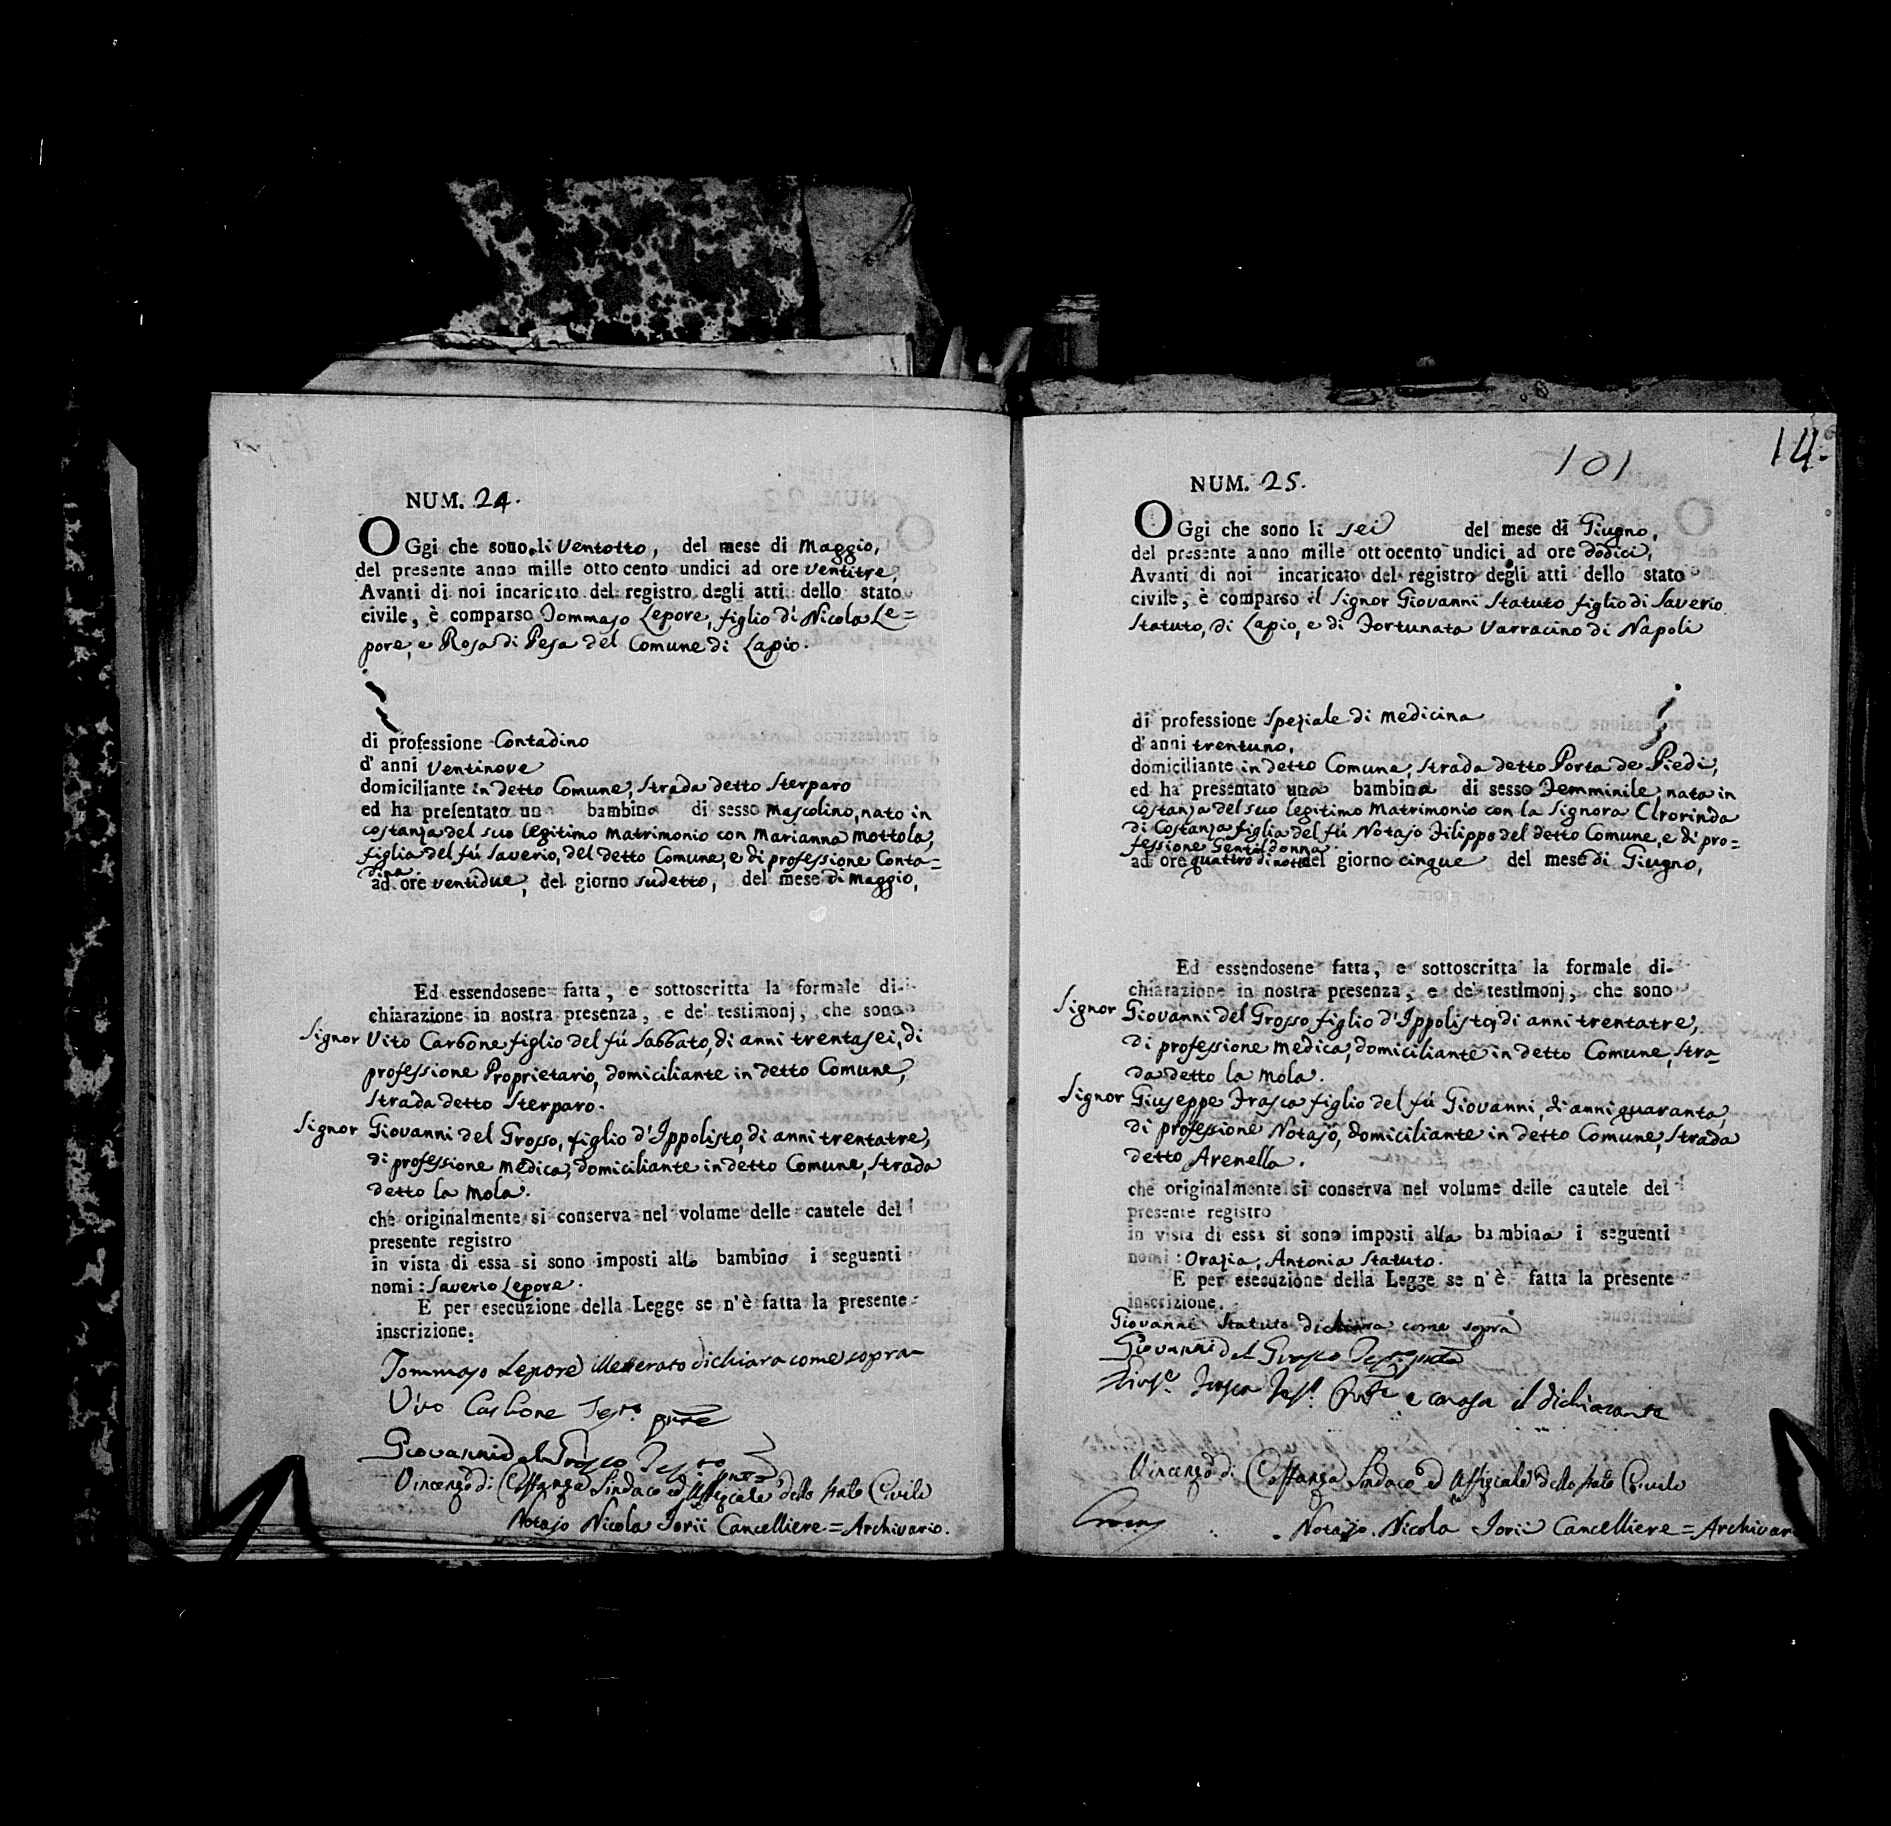 NUM. 24.
OGgi che sono li Ventotto, del mese di Maggio,
del presente anno mille ottocento undici ad ore ventitre,
Avanti di noi incaricato del registro degli atti dello stato
civile, è comparso Tommaso Lepore, figlio di Nicola Le=
pore, e Rosa di Pesa del Comune di Lapio.
di professione Contadino
d' anni Ventinove
domiciliante in detto Comune, Strada detto Sterparo
ed ha presentato un bambino di sesso Mascolino, nato in
costanza del suo legitimo Matrimonio con Marianna Mottola,
figlia del fú Saverio, del detto Comune, e di professione Conta=
dina.
ad ore ventidue, del giorno sudetto, del mese di Maggio,
Ed essendosene fatta, e sottoscritta la formale di-
chiarazione in nostra presenza, e de' testimonj, che sono
Signor Vito Carbone figlio del fú Sabbato, di anni trentasei, di
professione Proprietario, domiciliante in detto Comune,
Strada detto Sterparo.
Signor Giovanni del Grosso, figlio d'Ippolisto, di anni trentatre,
di professione Medica, domiciliante in detto Comune, Strada
detto la Mola.
che originalmente si conserva nel volume delle cautele del
presente registro
in vista di essa si sono imposti allo bambino i seguenti
nomi: Saverio Lepore.
E per esecuzione della Legge se n'è fatta la presente
inscrizione.
Tommaso Lepore illetterato dichiara come sopra
Vito Carbone Test.o
Giovanni del Grosso Testo
Vincenzo di Costanza Sindaco ed Uffiziale dello stato Civile
Notajo Nicola Iorii Cancelliere = Archivario.
101
14.
NUM. 25.
OGgi che sono li sei del mese di Giugno,
del presente anno mille ottocento undici ad ore dodici,
Avanti di noi incaricato del registro degli atti dello stato
civile, è comparso il Signor Giovanni Statuto figlio di Saverio
Statuto, di Lapio, e di Fortunata Varracino di Napoli
di professione Speziale di Medicina
d' anni trentuno,
domiciliante in detto Comune, Strada detto Porta de Piedi,
ed ha presentato una bambina di sesso Femminile, nata in
costanza del suo legitimo Matrimonio con la Signora Clrorinda
di Costanza figlia del fú Notajo Filippo del detto Comune, e di pro=
fessione Gentildonna.
ad ore quattro di notte del giorno cinque del mese di Giugno,
Ed essendosene fatta, e sottoscritta la formale di-
chiarazione in nostra presenza, e de' testimonj, che sono
Signor Giovanni del Grosso figlio d'Ippolisto, di anni trentatre,
di professione Medica, domiciliante in detto Comune, Stra=
da detto la Mola.
Signor Giuseppe Frasca figlio del fú Giovanni, di anni quaranta,
di professione Notajo, domiciliante in detto Comune, Strada
detto Arenella.
che originalmente si conserva nel volume delle cautele del
presente registro
in vista di essa si sono imposti alla bambina i seguenti
nomi: Orazia, Antonia Statuto.
E per esecuzione della Legge se n'è fatta la presente
inscrizione.
Giovanni Statuto dichiara come sopra
Giovanni del Grosso
Frasca e conosca il dichiarante
Vincenzo di Costanza Sindaco ed Uffiziale dello stato Civile
Notajo Nicola Iorii Cancelliere = Archivar